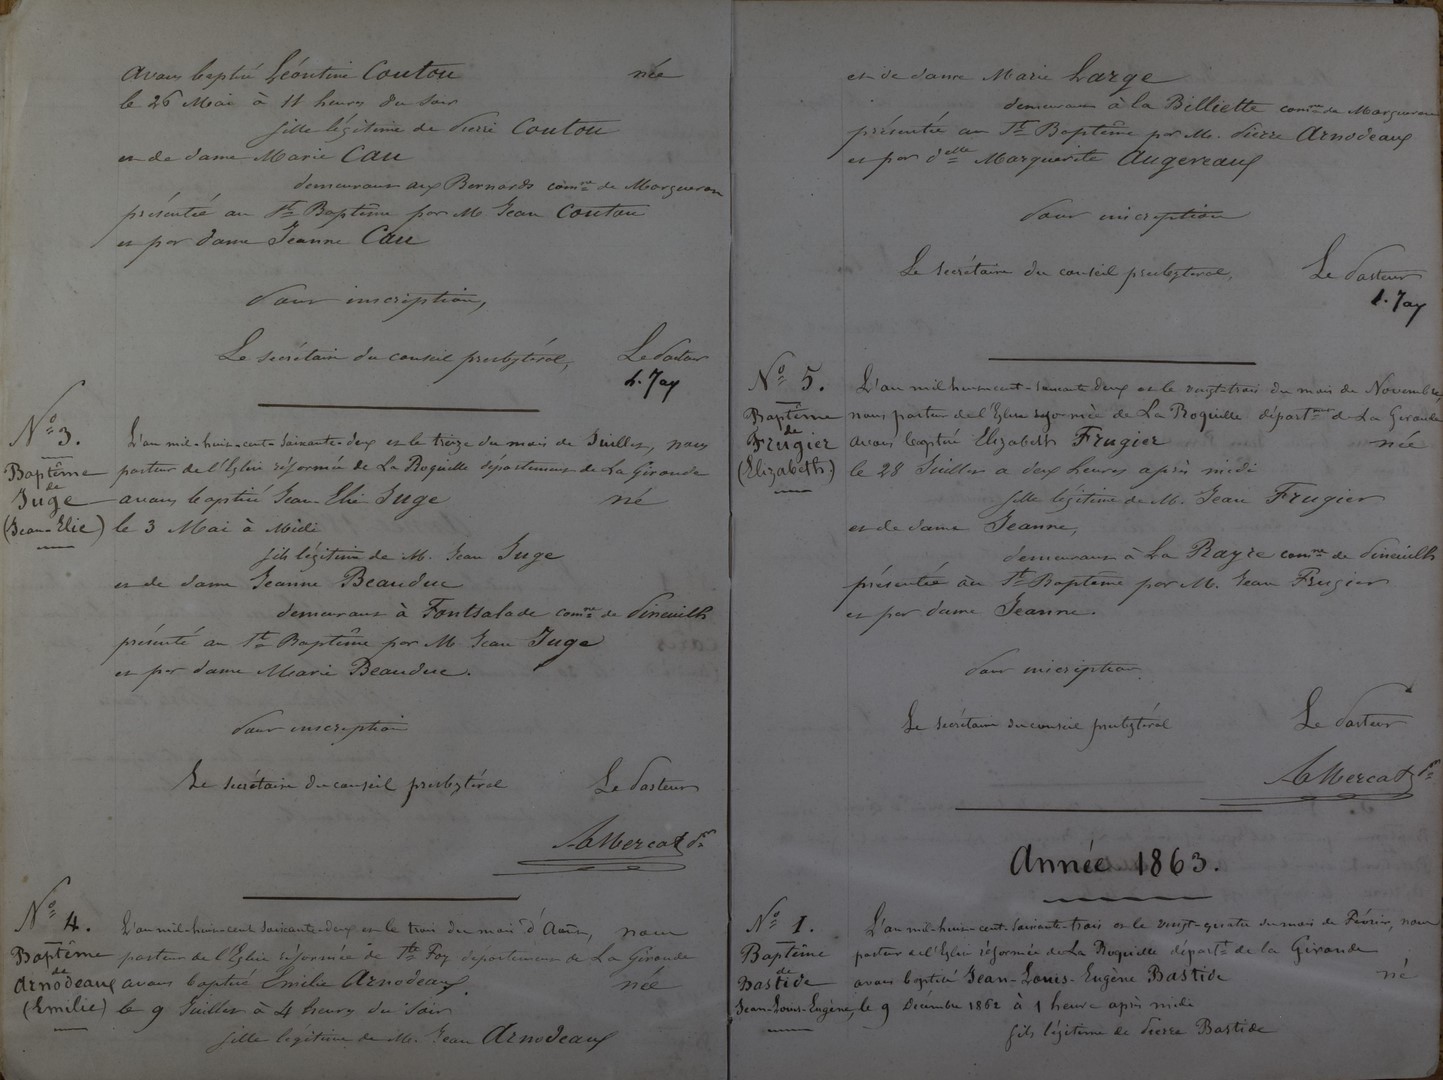 avons baptisé Léontine Coutou née
le 26 Mai à 11 heures du soir
fille légitime de Pierre Coutou
et de dame Marie Cau
demeurant aux Bernards comne de Margueron
présentée au St Baptême par M. Jean Coutou
et par dame Jeanne Cau
Pour inscription,
Le secrétaire du conseil presbytéral, Le Pasteur
L. Jay
No 3.
Baptême
de
Juge
(Jean-Elie)
L'an mil-huit-cent-soixante-deux et le treize du mois de Juillet, nous
pasteur de l'Eglise réformée de La Roquille département de La Gironde
avons baptisé Jean Elie Juge né
le 3 Mai à Midi
fils légitime de M. Jean Juge
et de dame Jeanne Beauduc
demeurant à Fontsalade comne de Pineuilh
présenté au St Baptême par M. Jean Juge
et par dame Marie Beauduc.
Pour inscription
Le secrétaire du conseil presbytéral Le Pasteur
A Mercat pr
No 4.
Baptême
de
Arnodeaux
(Emilie)
L'an mil-huit-cent soixante-deux et le trois du mois d'Août, nous
pasteur de l'Eglise réformée de Ste Foy département de La Gironde
avons baptisé Emilie Arnodeaux née
le 9 Juillet à 4 heures du soir
fille légitime de M. Jean Arnodeaux
et de dame Marie Large
demeurant à la Billiette comne de Margueron
présentée au St Baptême par M. Pierre Arnodeaux
et par delle Marguerite Augereaux
Pour inscription
Le secrétaire du conseil presbytéral, Le Pasteur
L. Jay
No 5.
Baptême
de
Frugier
(Elizabeth)
L'an mil huit-cent-soixante deux et le vingt-trois du mois de Novembre,
nous pasteur de l'Eglise réformée de La Roquille départnt de La Gironde
avons baptisé Elizabeth Frugier née
le 28 Juillet à deux heures après midi
fille légitime de M. Jean Frugier
et de dame Jeanne,
demeurant à La Rayre comne de Pineuilh
présentée au St Baptême par M. Jean Frugier
et par dame Jeanne.
Pour inscription
Le secrétaire du conseil presbytéral Le Pasteur
A Mercat pr
Année 1863.
No 1.
Baptême
de
Bastide
Jean-Louis-Eugène,
L'an mil-huit-cent-soixante-trois et le vingt-quatre du mois de Février, nous
pasteur de l'Eglise réformée de La Roquille départt de la Gironde
avons baptisé Jean-Louis-Eugène Bastide né
le 9 Décembre 1862 à 1 heure après midi
fils légitime de Pierre Bastide